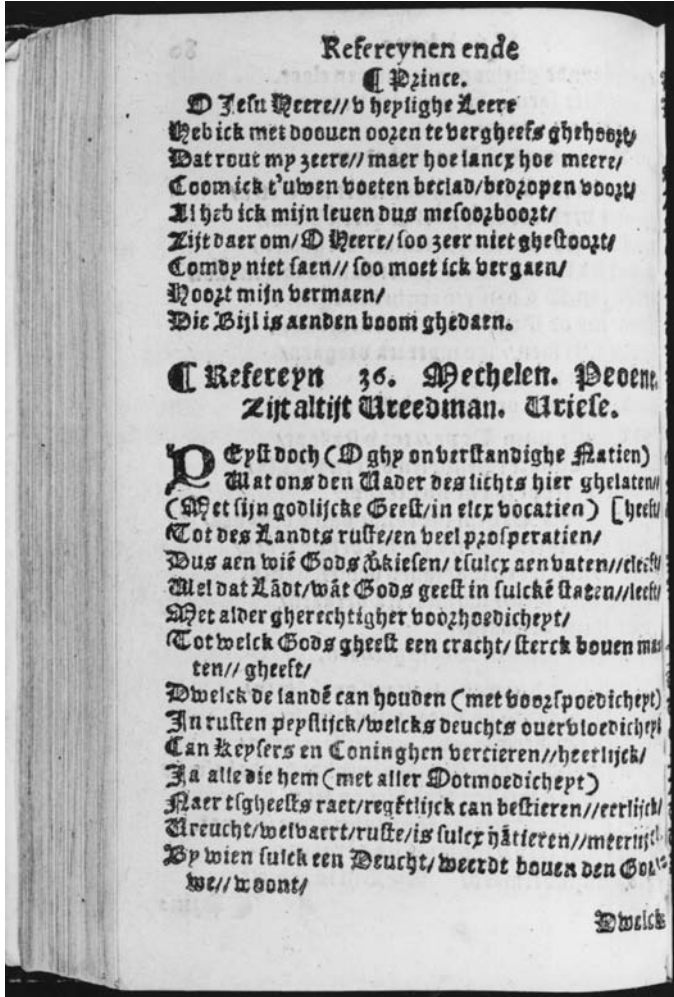 Refereynen ende
¶ Prince.
O Jesu Heere// v heylighe Leere
Heb ick met dooven ooren te vergheefs ghehoort/
Dat rout my zeere// maer hoe lancx hoe meere/
Coom ick t'uwen voeten beclad/bedropen voort/
Al heb ick mijn leuen dus mesoorboort/
Zijt daer om/ O Heere/ soo zeer niet ghestoort/
Comdy niet saen// soo moet ick vergaen/
Hoort mijn vermaen/
Die Bijl is aenden boom ghedaen.
¶ Refereyn 36. Mechelen. Peoene.
Zijt altijt Vreedman. Vriese.
PEyst doch (O ghy onverstandighe Natien)
Wat ons den Vader des lichts hier ghelaten//
(Met sijn godlijcke Geest/in elcx vocatien) [heeft/
Tot des Landts ruste/en veel prosperatien/
Dus aen wiē Gods v̄kiesen/ tsulcx aenvaten//cleeft/
Wel dat Lādt/wāt Gods geest in sulckē staten//leeft/
Met alder gherechtigher voorhoedicheyt/
Tot welck Gods gheest een cracht/ sterck bouen ma-
ten// gheeft/
Dwelck de landē can houden (met voorspoedicheyt)
In rusten peyslijck/welcks deuchts overvloedicheyt
Can Keysers en Coninghen vercieren//heerlijck/
Ja alle die hem (met aller Ootmoedicheyt)
Naer tsgheests raet/regtlijck can bestieren//eerlijck/
Vreucht/welvaert/ruste/is sulcx hātieren//meerlijck/
By wien sulck een Deucht/weerdt bouen den Gou-
we// woont/
Dwelck